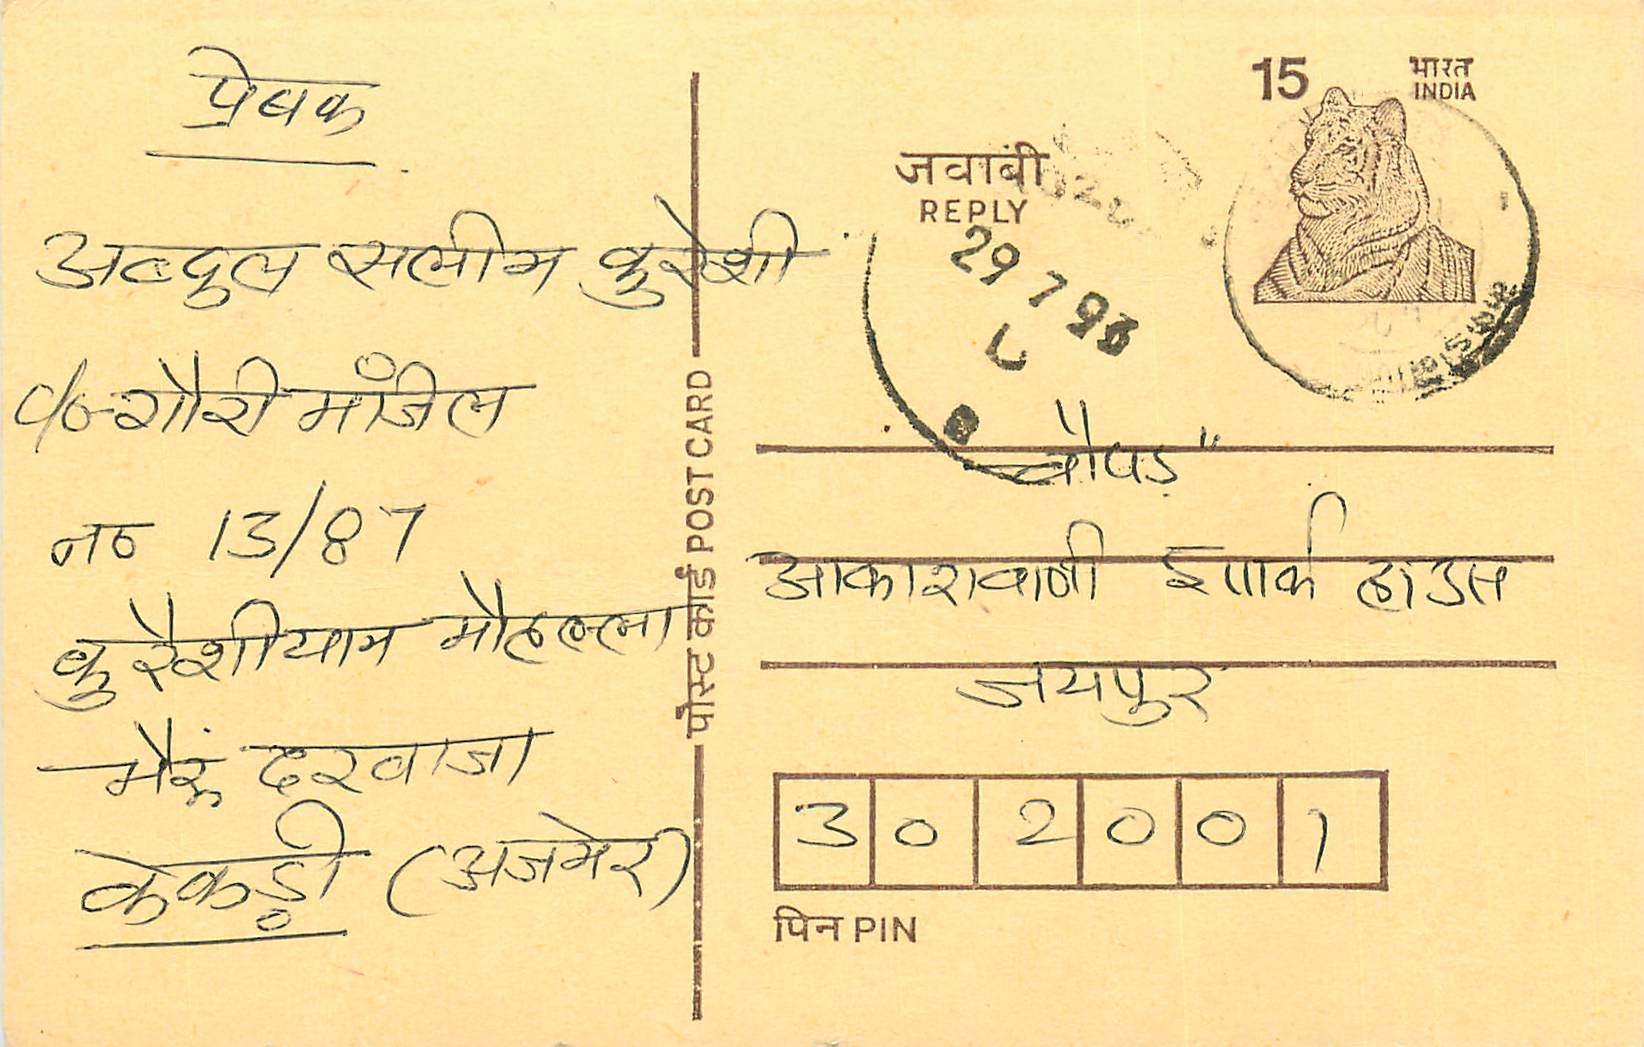 प्रेषक
अब्दुल सलीम कुरेशी
C/o-गौरी मंजिल
न० 13/87
कुरैशीयान मौहल्ला
भैरूं दरवाजा
केकड़ी (अजमेर)
पोस्ट कार्ड POST CARD
15 भारत
INDIA
जवाबी
REPLY
29 7 93
"चौपड़"
आकाशवाणी हाउस
जयपुर
302001
पिन PIN